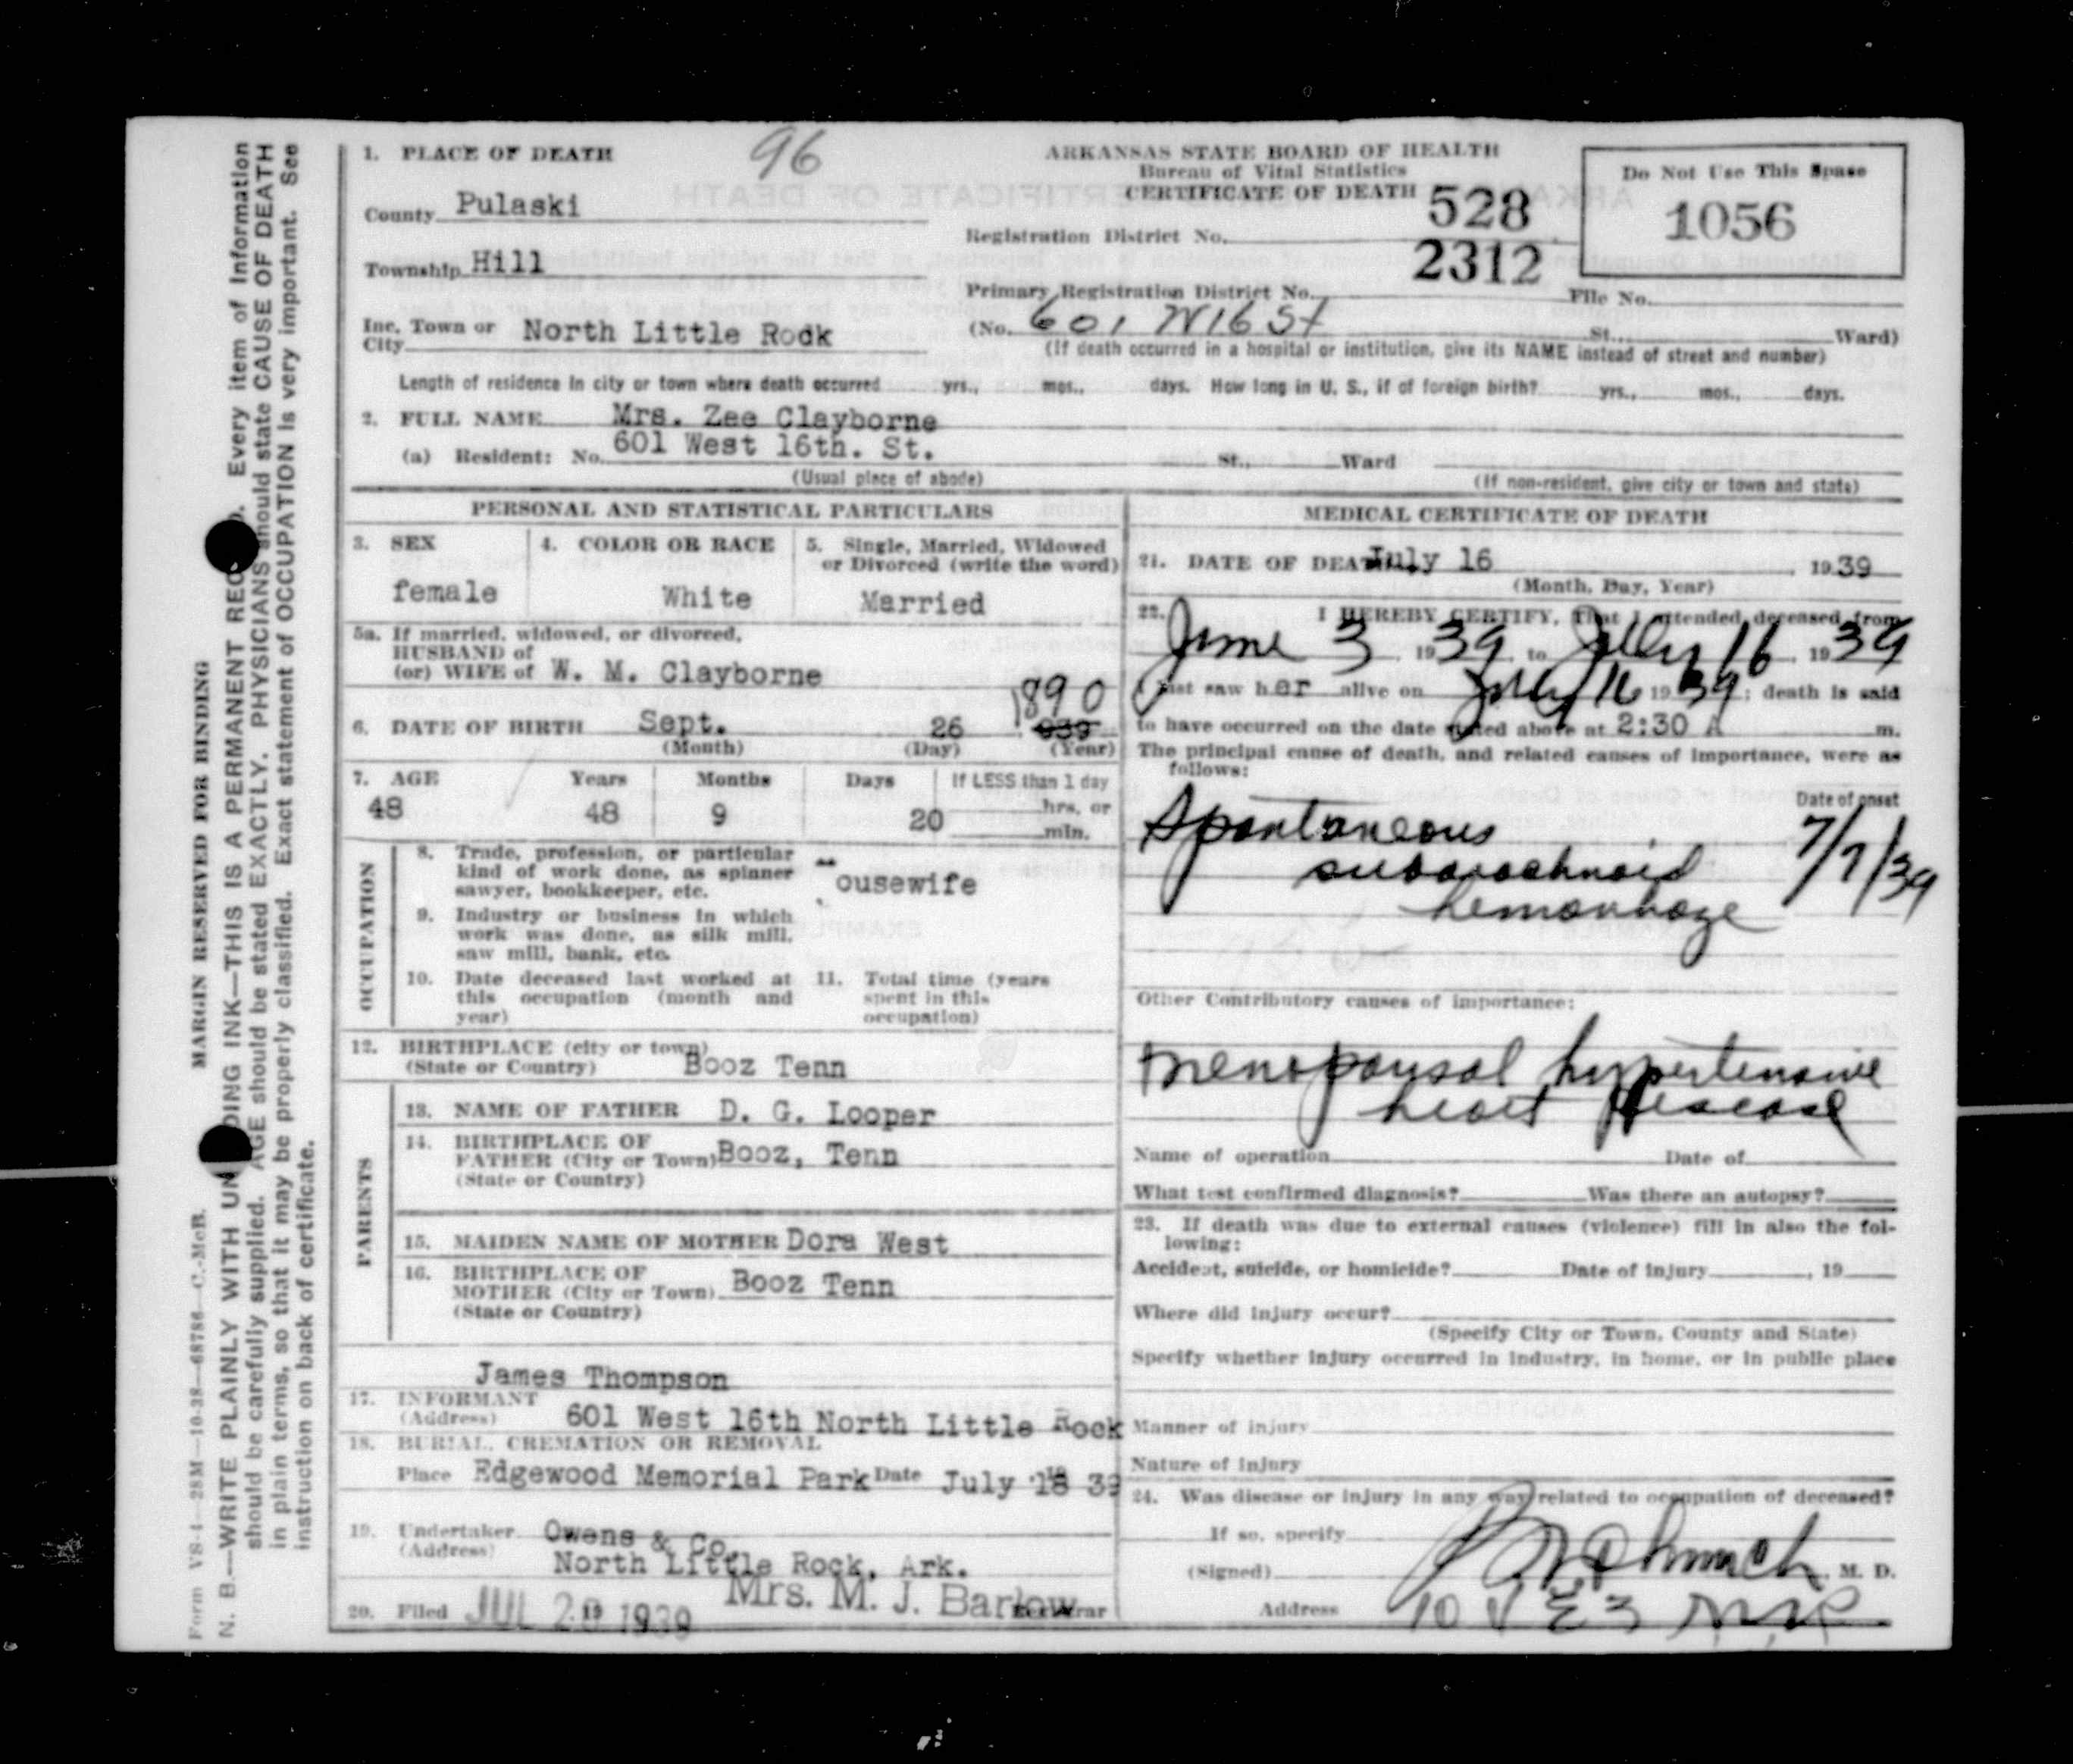 96
ARKANSAS STATE BOARD OF HEALTH
Bureau of Vital Statistics
CERTIFICATE OF DEATH
Do Not Use This Space
1056
1. PLACE OF DEATH
County Pulaski
Township Hill
Inc. Town or City North Little Rock
Registration District No. 528
Primary Registration District No. 2312
File No.
(No. 601 W 16 St St., Ward)
(If death occurred in a hospital or institution, give its NAME instead of street and number)
Length of residence in city or town where death occurred yrs., mos., days. How long in U. S., if of foreign birth? yrs., mos., days.
2. FULL NAME Mrs. Zee Clayborne
(a) Resident: No. 601 West 16th. St. St., Ward
(Usual place of abode) (If non-resident, give city or town and state)
PERSONAL AND STATISTICAL PARTICULARS
3. SEX female
4. COLOR OR RACE White
5. Single, Married, Widowed or Divorced (write the word) Married
5a. If married, widowed, or divorced,
HUSBAND of
(or) WIFE of W. M. Clayborne
6. DATE OF BIRTH Sept. 26 1890
(Month) (Day) (Year)
7. AGE Years Months Days If LESS than 1 day
48 48 9 20 hrs. or
min.
OCCUPATION
8. Trade, profession, or particular
kind of work done, as spinner
sawyer, bookkeeper, etc. ousewife
9. Industry or business in which
work was done, as silk mill,
saw mill, bank, etc.
10. Date deceased last worked at
this occupation (month and
year)
11. Total time (years
spent in this
occupation)
12. BIRTHPLACE (city or town)
(State or Country) Booz Tenn
PARENTS
13. NAME OF FATHER D. G. Looper
14. BIRTHPLACE OF
FATHER (City or Town) Booz, Tenn
(State or Country)
15. MAIDEN NAME OF MOTHER Dora West
16. BIRTHPLACE OF
MOTHER (City or Town) Booz Tenn
(State or Country)
James Thompson
17. INFORMANT
(Address) 601 West 16th North Little Rock
18. BURIAL, CREMATION OR REMOVAL
Place Edgewood Memorial Park Date July 18 39
19. Undertaker Owens & Co.
(Address) North Little Rock, Ark.
20. Filed JUL 20 1939 Mrs. M. J. Barlow
Registrar
MEDICAL CERTIFICATE OF DEATH
21. DATE OF DEATH July 16, 1939
(Month, Day, Year)
22. I HEREBY CERTIFY, That I attended deceased from
June 3 1939 to July 16, 1939
I last saw her alive on July 16 1939; death is said
to have occurred on the date stated above at 2:30 A m.
The principal cause of death, and related causes of importance, were as
follows:
Date of onset
Spontaneous 7/7/39
subarachnoid
hemorrhage
Other Contributory causes of importance:
menopausal hypertensive
heart disease
Name of operation Date of
What test confirmed diagnosis? Was there an autopsy?
23. If death was due to external causes (violence) fill in also the fol-
lowing:
Accident, suicide, or homicide? Date of injury , 19
Where did injury occur?
(Specify City or Town, County and State)
Specify whether injury occurred in industry, in home, or in public place
Manner of injury
Nature of injury
24. Was disease or injury in any way related to occupation of deceased?
If so, specify
(Signed) M. D.
Address
MARGIN RESERVED FOR BINDING
Form VS-4—28M—10-38—68786—C.-McB.
N. B.—WRITE PLAINLY WITH UN DING INK—THIS IS A PERMANENT REC D. Every item of Information
should be carefully supplied. AGE should be stated EXACTLY. PHYSICIANS should state CAUSE OF DEATH
in plain terms, so that it may be properly classified. Exact statement of OCCUPATION is very important. See
instruction on back of certificate.